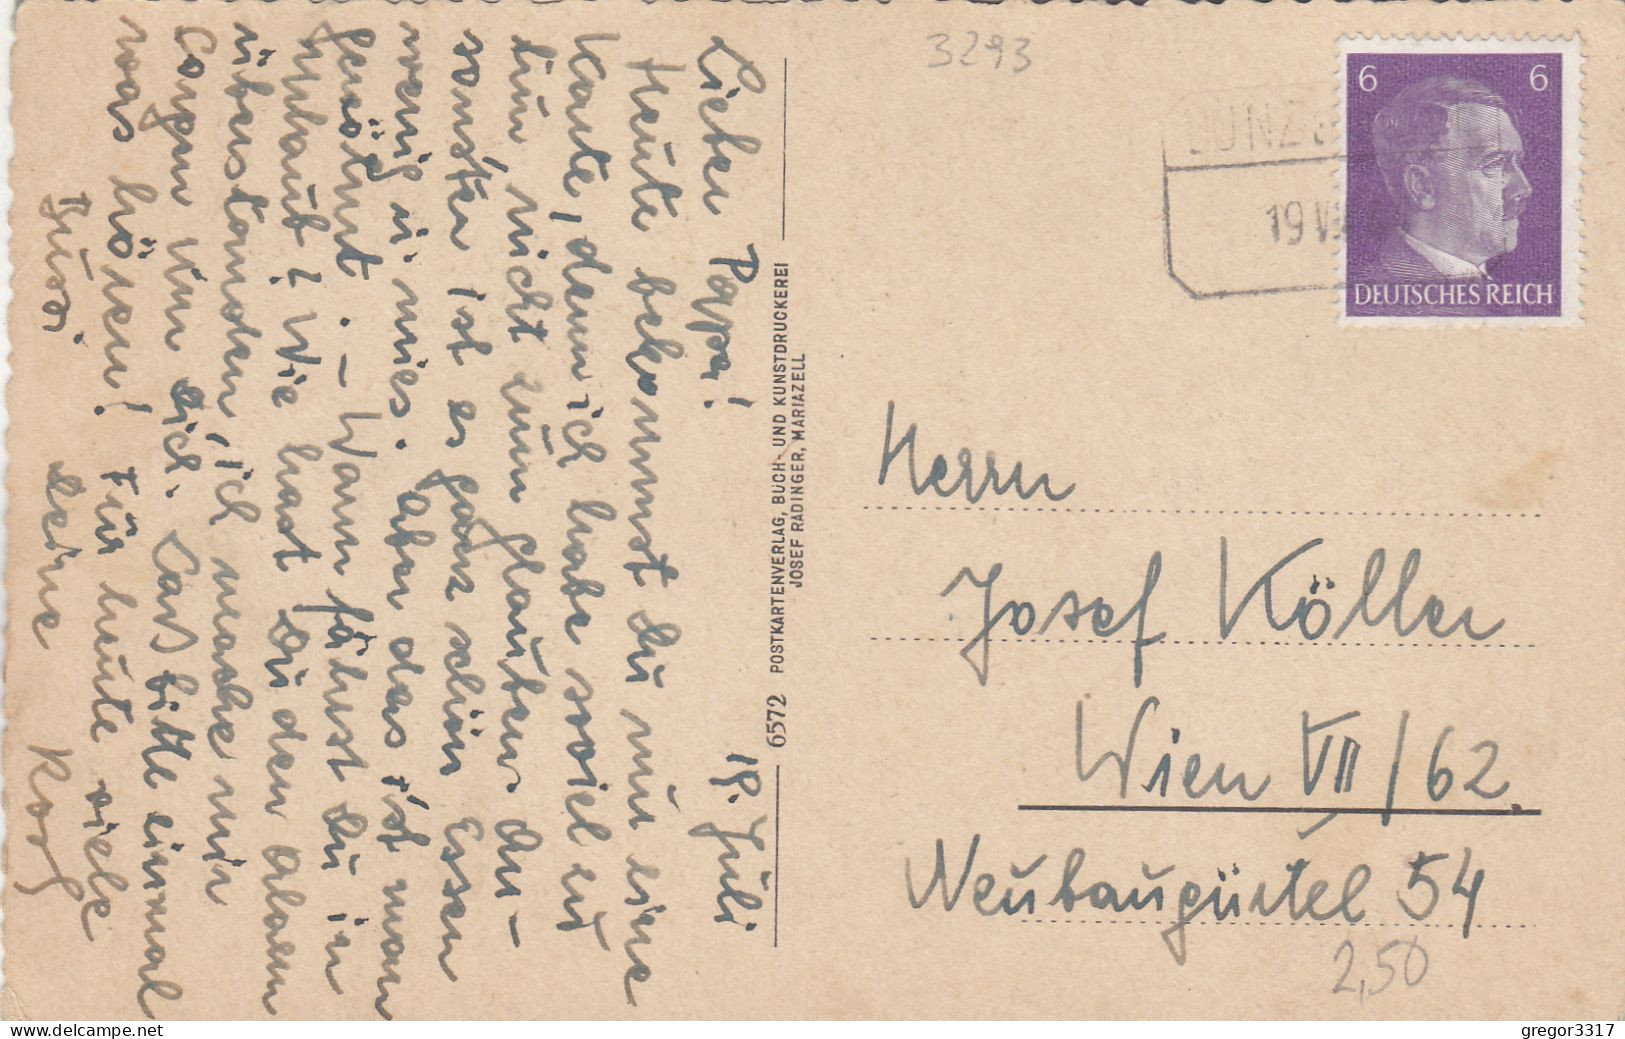 3293
6 6
DEUTSCHES REICH
LUNZ
19 VII
Lieber Papa! 19. Juli
Heute bekommst Du nur eine
Karte, denn ich habe soviel zu
tun, nicht zum glauben du-
sonsten ist es ganz schön Essen
wenig u. mies. Aber das ist man
gewöhnt. – Wann fährst Du in
Urlaub? Wie hast Du den Alarm
überstanden, ich mache mir
Sorgen um Dich. Lass bitte einmal
was hören! Für heute viele
Bussi Deine
6572 POSTKARTENVERLAG, BUCH- UND KUNSTDRUCKEREI
JOSEF RADINGER, MARIAZELL
Herrn
Josef Köller
Wien VII/62.
Neubaugürtel 54
2,50
www.delcampe.net
gregor3317